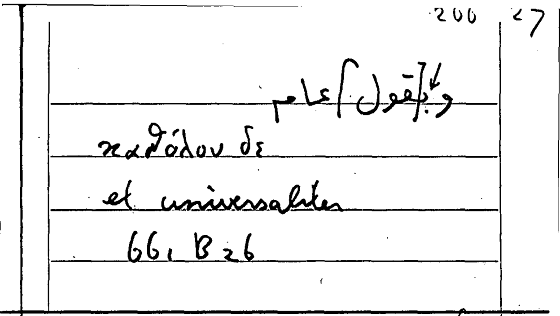 200 27
و[بقول] عام
καθόλου δε
et universaliter
66, B 26